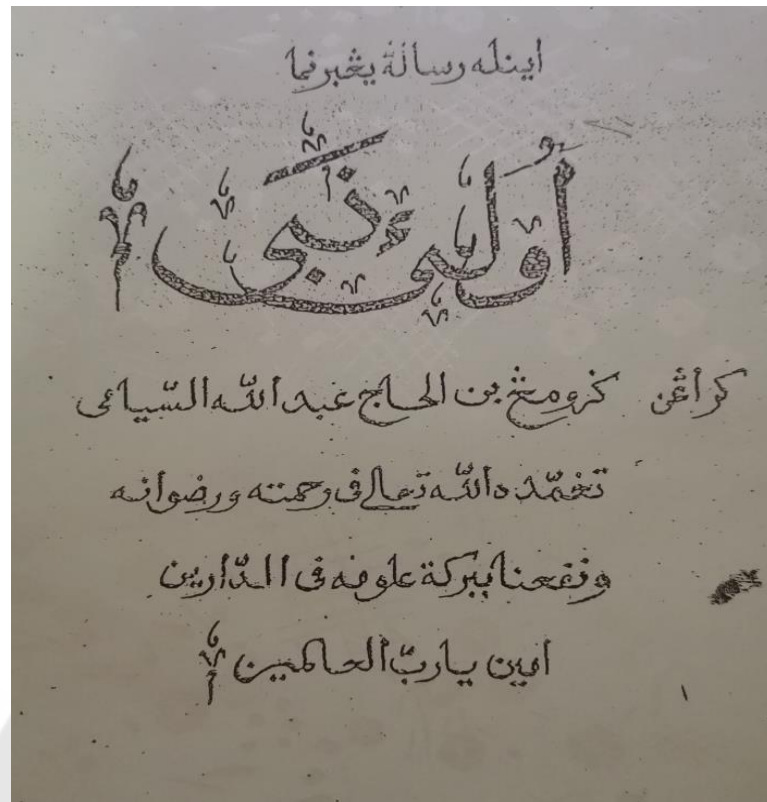 اينله رسالة يڠبرنما
أولي نبي
كراڠن كزومڠ بن الحاج عبد الله السّياعى
تغمّده الله تعالى فى رحمته ورضوانه
ونفعنا ببركة علومه فى الدّارين
امين يا ربّ العالمين